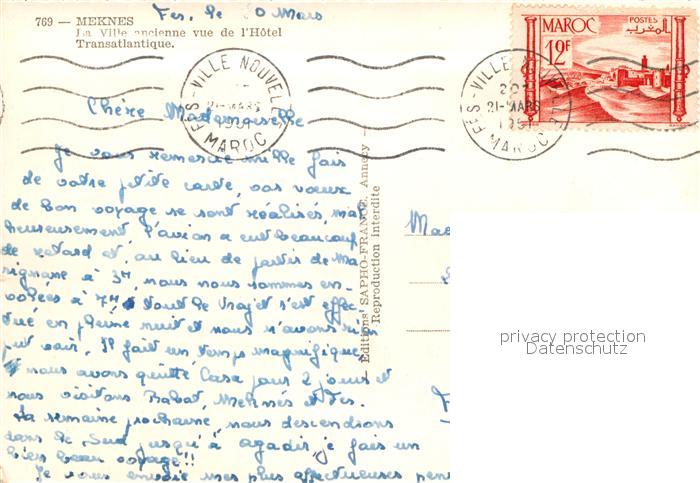 Fes, le 20 Mars
769 — MEKNES
La Ville ancienne vue de l'Hôtel
Transatlantique.
MAROC
POSTES
المغرب
12F
FES-VILLE NOUVELLE
21-MARS
1951
MAROC
FES-VILLE NOUVELLE
20
21-MARS
1951
MAROC
Chère Mademoiselle
Je vous remercie mille fois
de votre petite carte, vos vœux
de bon voyage se sont réalisés, mal
heureusement l'avion a eut beaucoup
de retard et au lieu de partir de Ma
rignane à 3H, nous nous sommes en-
volées à 7H, tout le trajet s'est effec
tué en pleine nuit et nous n'avons rien
put voir. Il fait un temps magnifique
nous avons quitté Casa pour 2 jours et
nous visitons Rabat, Meknés et Fes.
La semaine prochaine, nous descendrons
dans le Sud jusqu'à agadir, je fais un
bien beau voyage!!
Je vous envoie mes plus affectueuses pen
Editions SAPHO-FRANCE, Annecy —
Reproduction interdite
Mad
privacy protection
Datenschutz